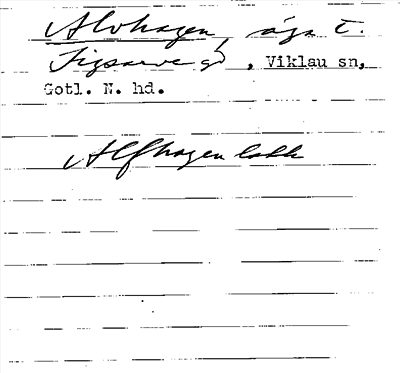 Alvhagen, äga t.
Tigsarve gd, Viklau sn,
Gotl. N. hd.
Alfhagen